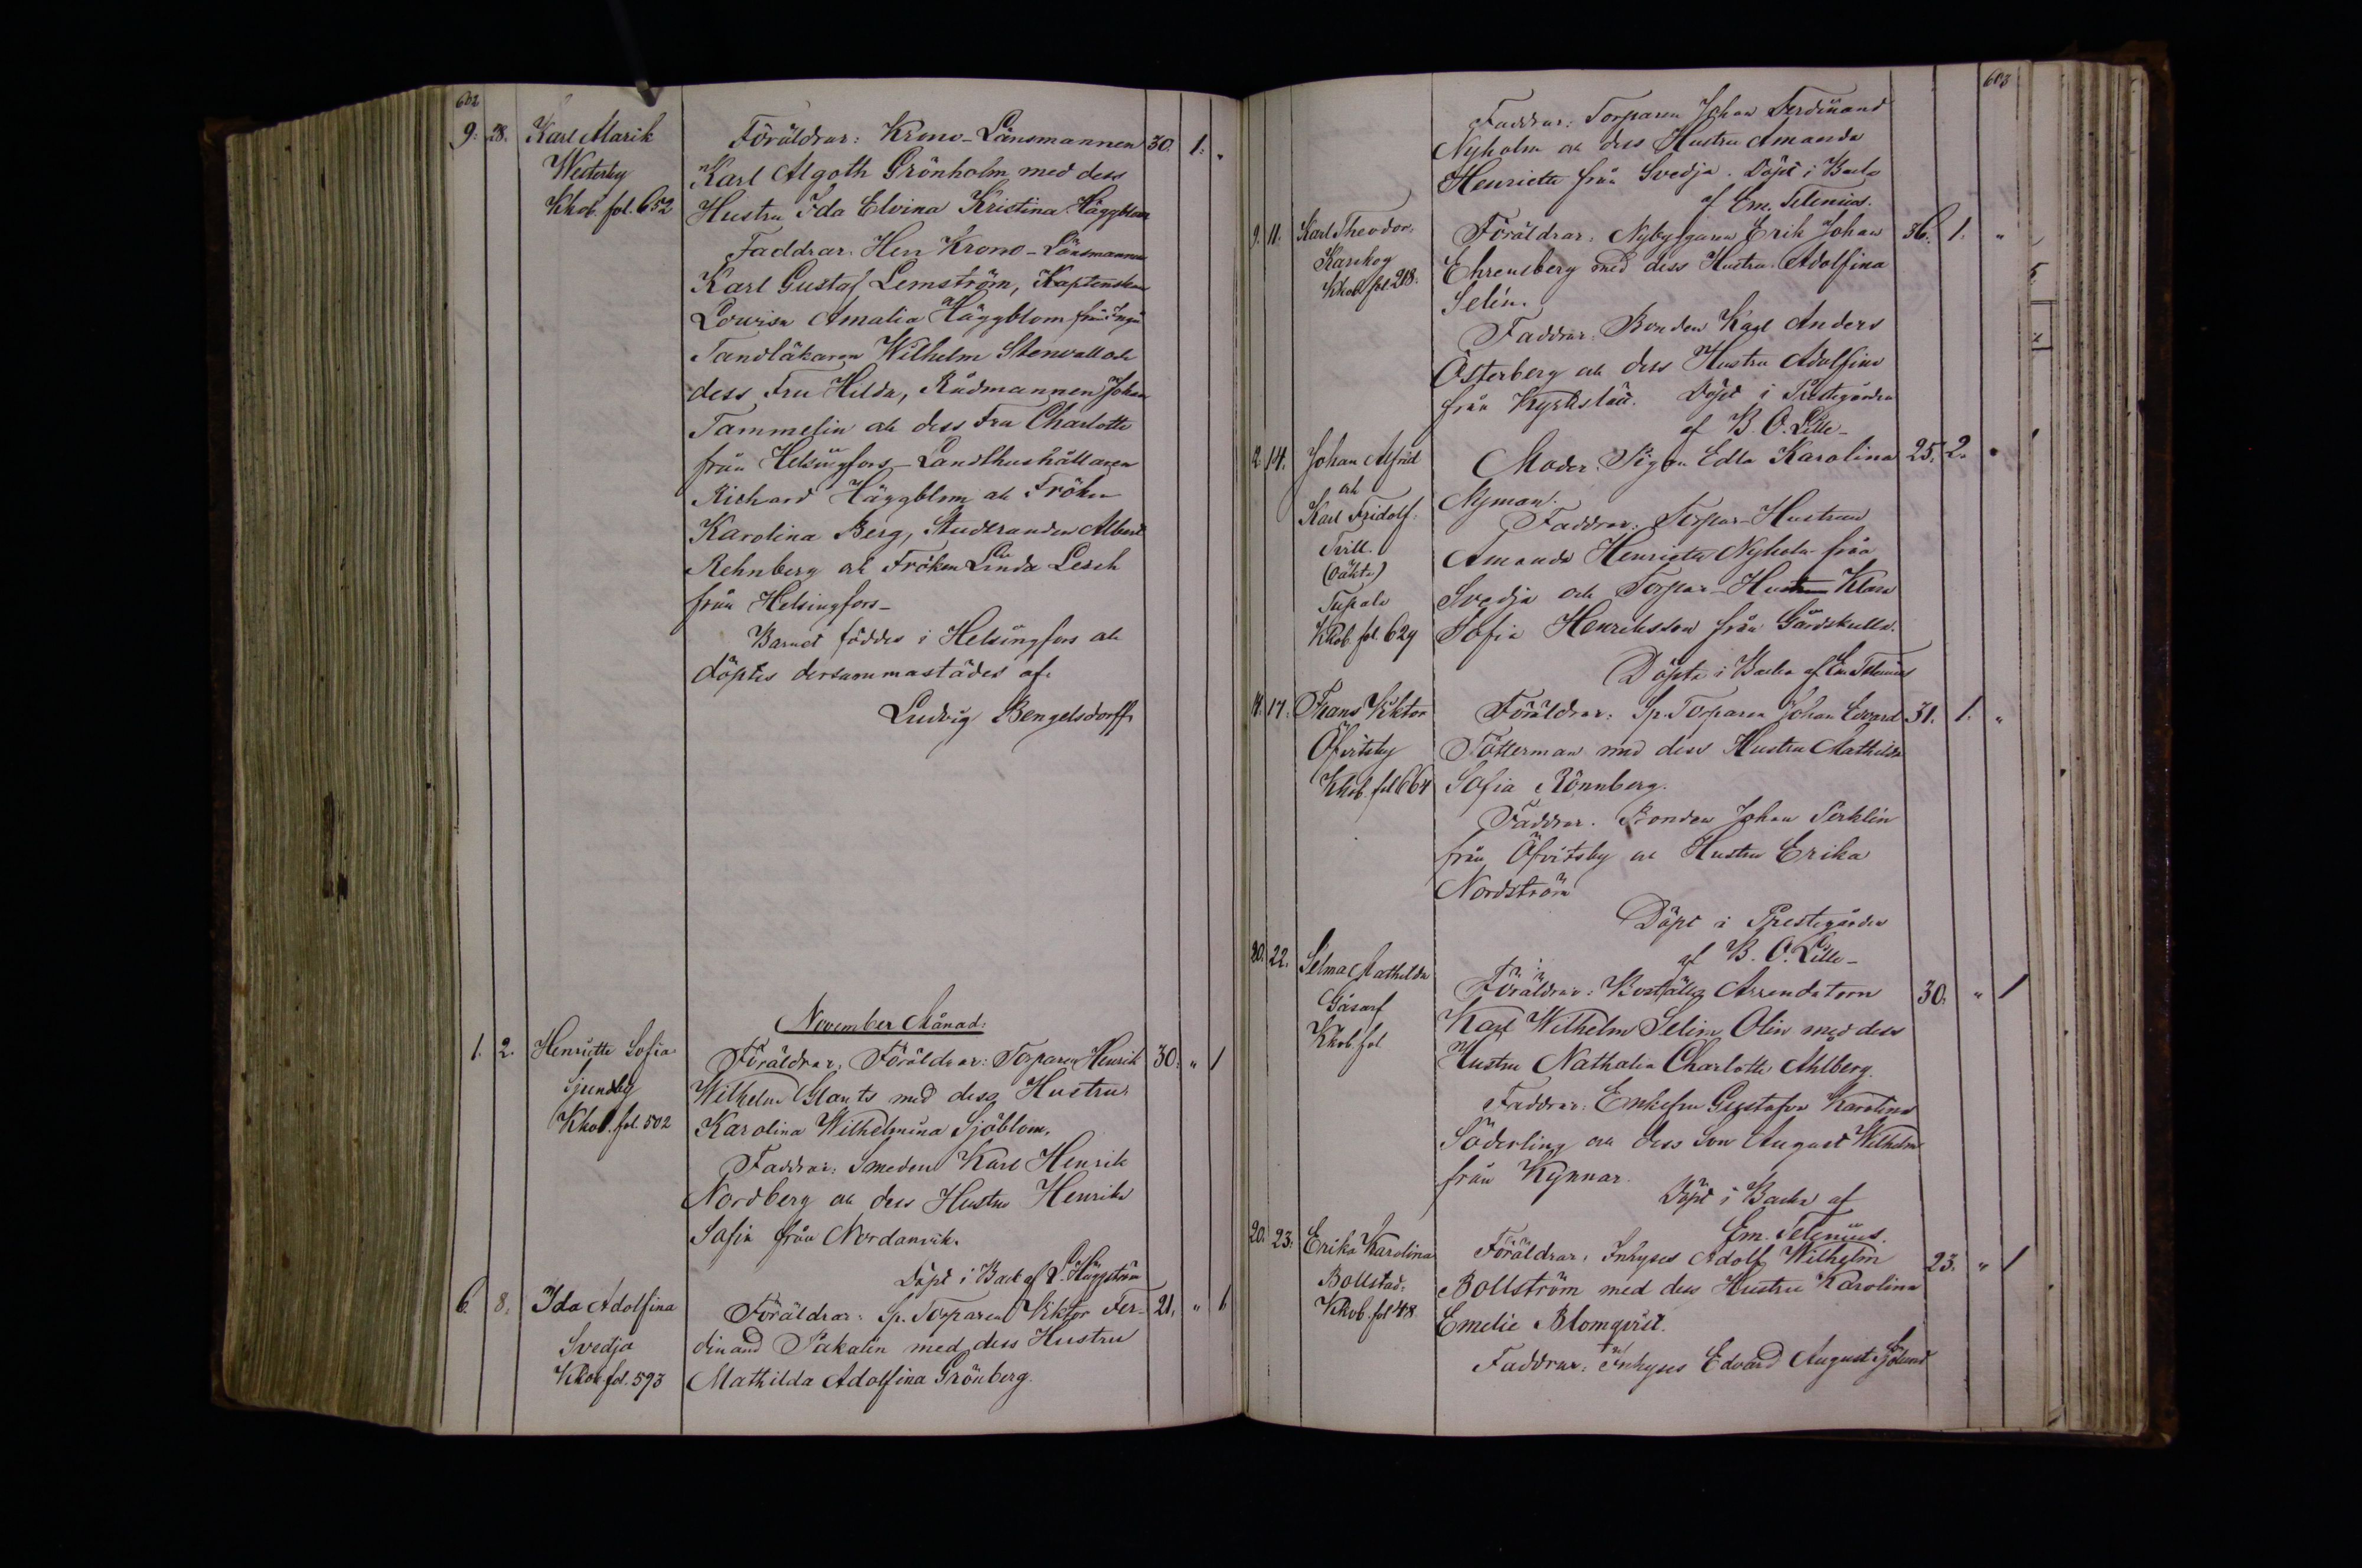 602
9. 28. Karl Alarik
Westerby
Kkob. fol. 652
Föräldrar: Krono-Länsmannen 30. 1. "
Karl Algoth Grönholm med dess
Hustru Ida Elvina Kristina Häggblom
Faddrar. Herr Krono-Länsmannen
Karl Gustaf Lemström, Kaptenskan
Lowisa Amalia Häggblom från Ingå
Tandläkaren Wilhelm Stenvall och
dess Fru Hilda, Rådmannen Johan
Tammelin och dess Fru Charlotte
från Helsingfors - Landthushållaren
Richard Häggblom och Fröken
Karolina Berg, Studeranden Albert
Rehnberg och Fröken Linda Lesch
från Helsingfors-
Barnet föddes i Helsingfors och
döptes dersammastädes af
Ludvig Bengelsdorff
November Månad:
1. 2. Henriette Sofia
Sjundby
Kkob. fol. 502
Föräldrar, Föräldrar: Torparen Henrik 30. " 1
Wilhelm Glants med dess Hustru
Karolina Wilhelmina Sjöblom.
Faddrar: Smeden Karl Henrik
Nordberg och dess Hustru Henrika
Sofia från Nordanvik.
Döpt i Back af Häggström
6. 8. Ida Adolfina
Svedja
Kkob fol. 593
Föräldrar: Sp. Torparen Viktor Fer- 21. " 1
dinand Sakalén med dess Hustru
Mathilda Adolfina Grönberg.
603
Faddrar: Torparen Johan Ferdinand
Nyholm och dess Hustru Amanda
Henrieta från Svedja. Döpt i Backa
af Em. Telenius.
9. 11. Karl Theodor,
Karskog
Kkob fol. 218.
Föräldrar: Nybyggaren Erik Johan 36. 1. "
Ehrensberg med dess Hustru Adolfina
Selin.
Faddrar: Bonden Karl Anders
Österberg och dess Hustru Adolfina
från Kyrkslätt. Döpt i Prestgården
af B. O. Lille-
12. 14. Johan Alfrid
och
Karl Fridolf.
Tvill.
(Oäkta)
Tupala
Kkob. fol. 629
Moder: Pigan Edla Karolina 25. 2. "
Nyman.
Faddrar: Torpar-Hustrun
Amanda Henrieta Nyholm från
Svedja och Torpar-Hustrun Klara
Sofia Henriksson från Gårdskulla.
Döpta i Backa af Em Telenius
14. 17. Frans Viktor
Öfvitsby
Kkob. fol 664
Föräldrar: Sp. Torparen Johan Edvard 31. 1. "
Tötterman med dess Hustru Mathilda
Sofia Rönnberg.
Faddrar. Bonden Johan Serklin
från Öfvitsby och Hustru Erika
Nordström
Döpt i Prestegården
af B. O. Lille-
20. 22. Selma Mathilda
Gåsarf
Kkob. fol
Föräldrar: Boställs Arrendatorn 30. " 1
Karl Wilhelm Selim Olin med dess
Hustru Nathalia Charlotte Ahlberg.
Faddrar: Enkefru Gustafva Karolina
Söderling och dess Son August Wilhelm
från Kynnar.
Döpt i Backa af
Em. Telenius.
20. 23. Erika Karolina
Bollstad.
Kkob. fol 48
Föräldrar, Inhyses Adolf Wilhelm 23. " 1
Bollström med dess Hustru Karolina
Emelie Blomqvist.
Faddrar: Inhyses Edvard August Sjölund